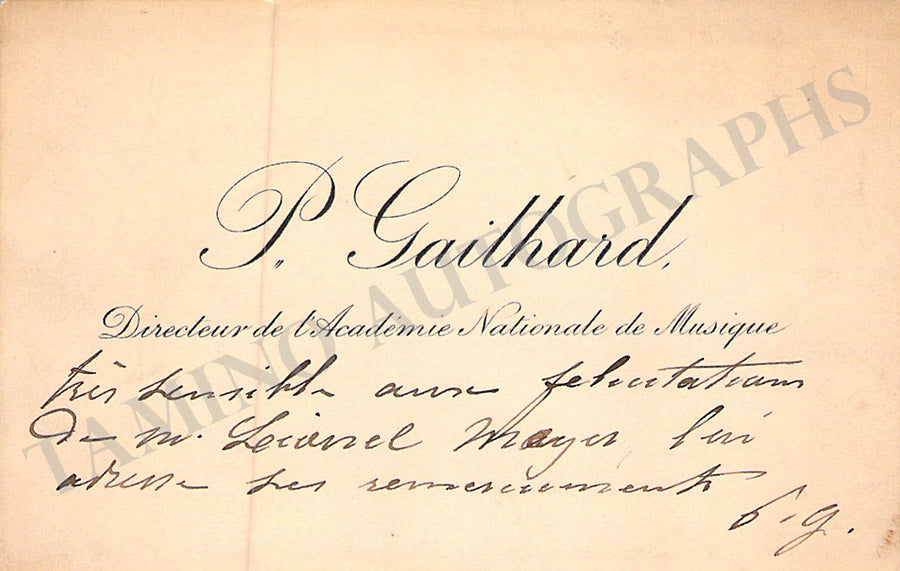 P. Gailhard,
Directeur de l'Académie Nationale de Musique
très sensible aux felicitations
de M. Lionel Mayer, lui
adresse ses remerciements
P. g.
TAMINO AUTOGRAPHS